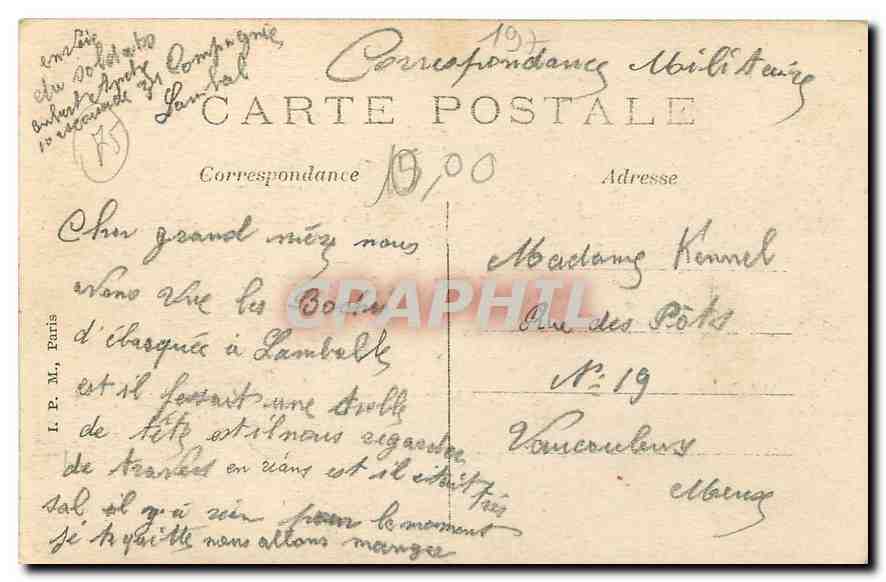 197
Correspondance Militaire
envoie
du soldats
31 Compagnie
Lambal
75
CARTE POSTALE
Correspondance
15,00
Adresse
Cher grand mére nous
avons vue les Boches
d'ébarquée à Lamballe
est il fessait une drolle
de tête est il nous regarder
de travers en rians est il était très
sal il y a rien pour le moment
je te quitte nous allons manger
Madame Kennel
Rue des Pôts
No 19
Vaucouleurs
Meuse
CPAPHIL
I. P. M., Paris